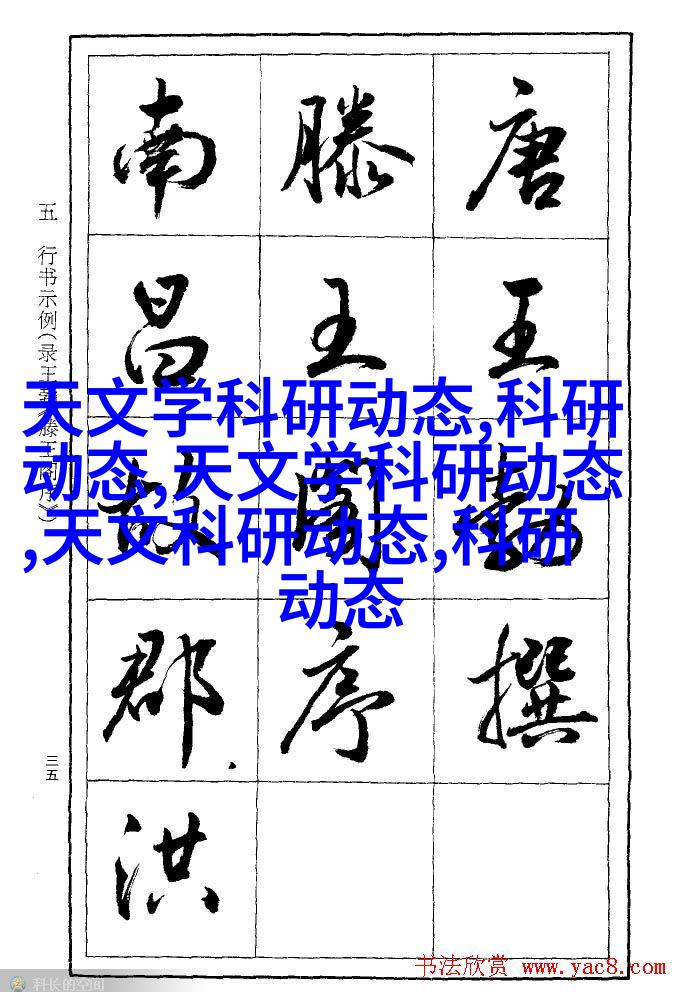 唐王勃撰
滕王阁序
南昌故郡、洪
五 行书示例(录王勃《滕王阁序》)
三五
天文学科研动态,科研
动态,天文学科研动态
,天文科研动态,科研
动态
书法欣赏 www.yac8.com
科长的空间